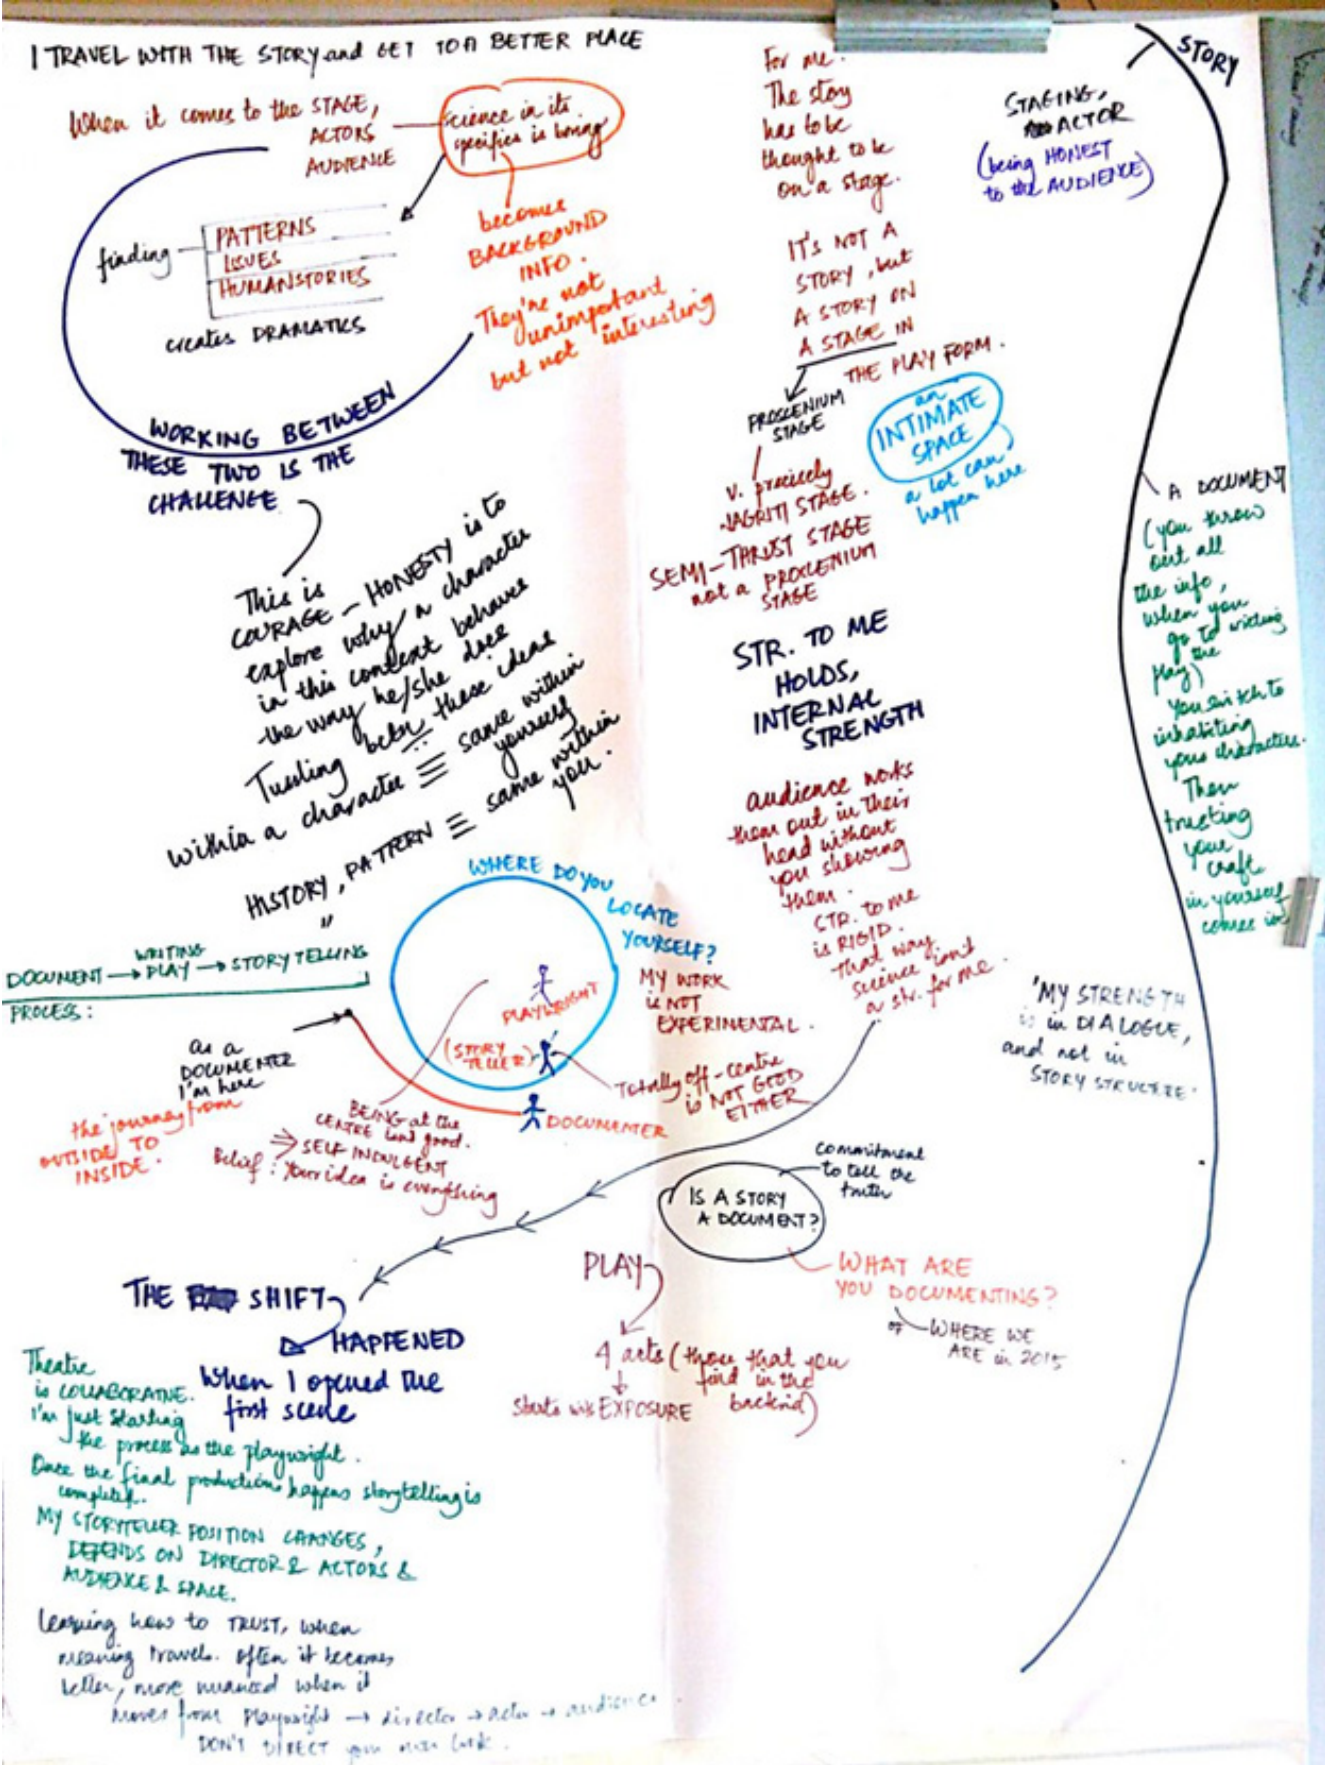 I TRAVEL WITH THE STORY and GET TO A BETTER PLACE
When it comes to the STAGE,
ACTORS
AUDIENCE
science in its
specifics is boring
finding
PATTERNS
ISSUES
HUMANSTORIES
creates DRAMATICS
becomes
BACKGROUND
INFO.
They're not
unimportant
but not interesting
WORKING BETWEEN
THESE TWO IS THE
CHALLENGE
This is
COURAGE - HONESTY is to
explore why a character
in this context behaves
the way he/she does
Tussling betn these ideas
within a character ≡ same within
yourself
HISTORY, PATTERN ≡ same within
you.
For me.
The story
has to be
thought to be
on a stage.
IT'S NOT A
STORY, but
A STORY ON
A STAGE IN
THE PLAY FORM.
PROSCENIUM
STAGE
an
INTIMATE
SPACE
a lot can
happen here
v. precisely
JAGRITI STAGE.
SEMI-THRUST STAGE
not a PROSCENIUM
STAGE
STR. TO ME
HOLDS,
INTERNAL
STRENGTH
audience works
them out in their
head without
you showing
them.
STR. to me
is RIGID.
that way
science isn't
a str. for me.
STORY
STAGING,
ACTOR
(being HONEST
to the AUDIENCE)
A DOCUMENT
(you throw
out all
the info,
when you
go to writing
the
play)
You switch to
inhabiting
your characters.
Then
trusting
your
craft
in yourself
comes in
'MY STRENGTH
is in DIALOGUE,
and not in
STORY STRUCTURE.
WHERE DO YOU
LOCATE
YOURSELF?
WRITING
DOCUMENT → PLAY → STORYTELLING
PROCESS:
as a
DOCUMENTER
I'm here
the journey from
OUTSIDE TO
INSIDE.
PLAYWRIGHT
(STORY
TELLER)
DOCUMENTER
MY WORK
is NOT
EXPERIMENTAL.
Totally off-centre
is NOT GOOD
EITHER
BEING at the
CENTRE isn't good.
⇒ SELF INDULGENT
Belief: Your idea is everything
IS A STORY
A DOCUMENT?
commitment
to tell the
truth
WHAT ARE
YOU DOCUMENTING?
WHERE WE
ARE in 2015
PLAY
4 acts (those that you
find in the
Starts with EXPOSURE
THE SHIFT
HAPPENED
When I opened the
first scene
Theatre
is COLLABORATIVE.
I'm just starting
the process as the playwright.
Once the final production happens storytelling is
completed.
MY STORYTELLER POSITION CHANGES,
DEPENDS ON DIRECTOR & ACTORS &
AUDIENCE & SPACE.
Learning how to TRUST, when
meaning travels. Often it becomes
better, more nuanced when it
moves from Playwright → director → actor → audience
DON'T DIRECT your own work.